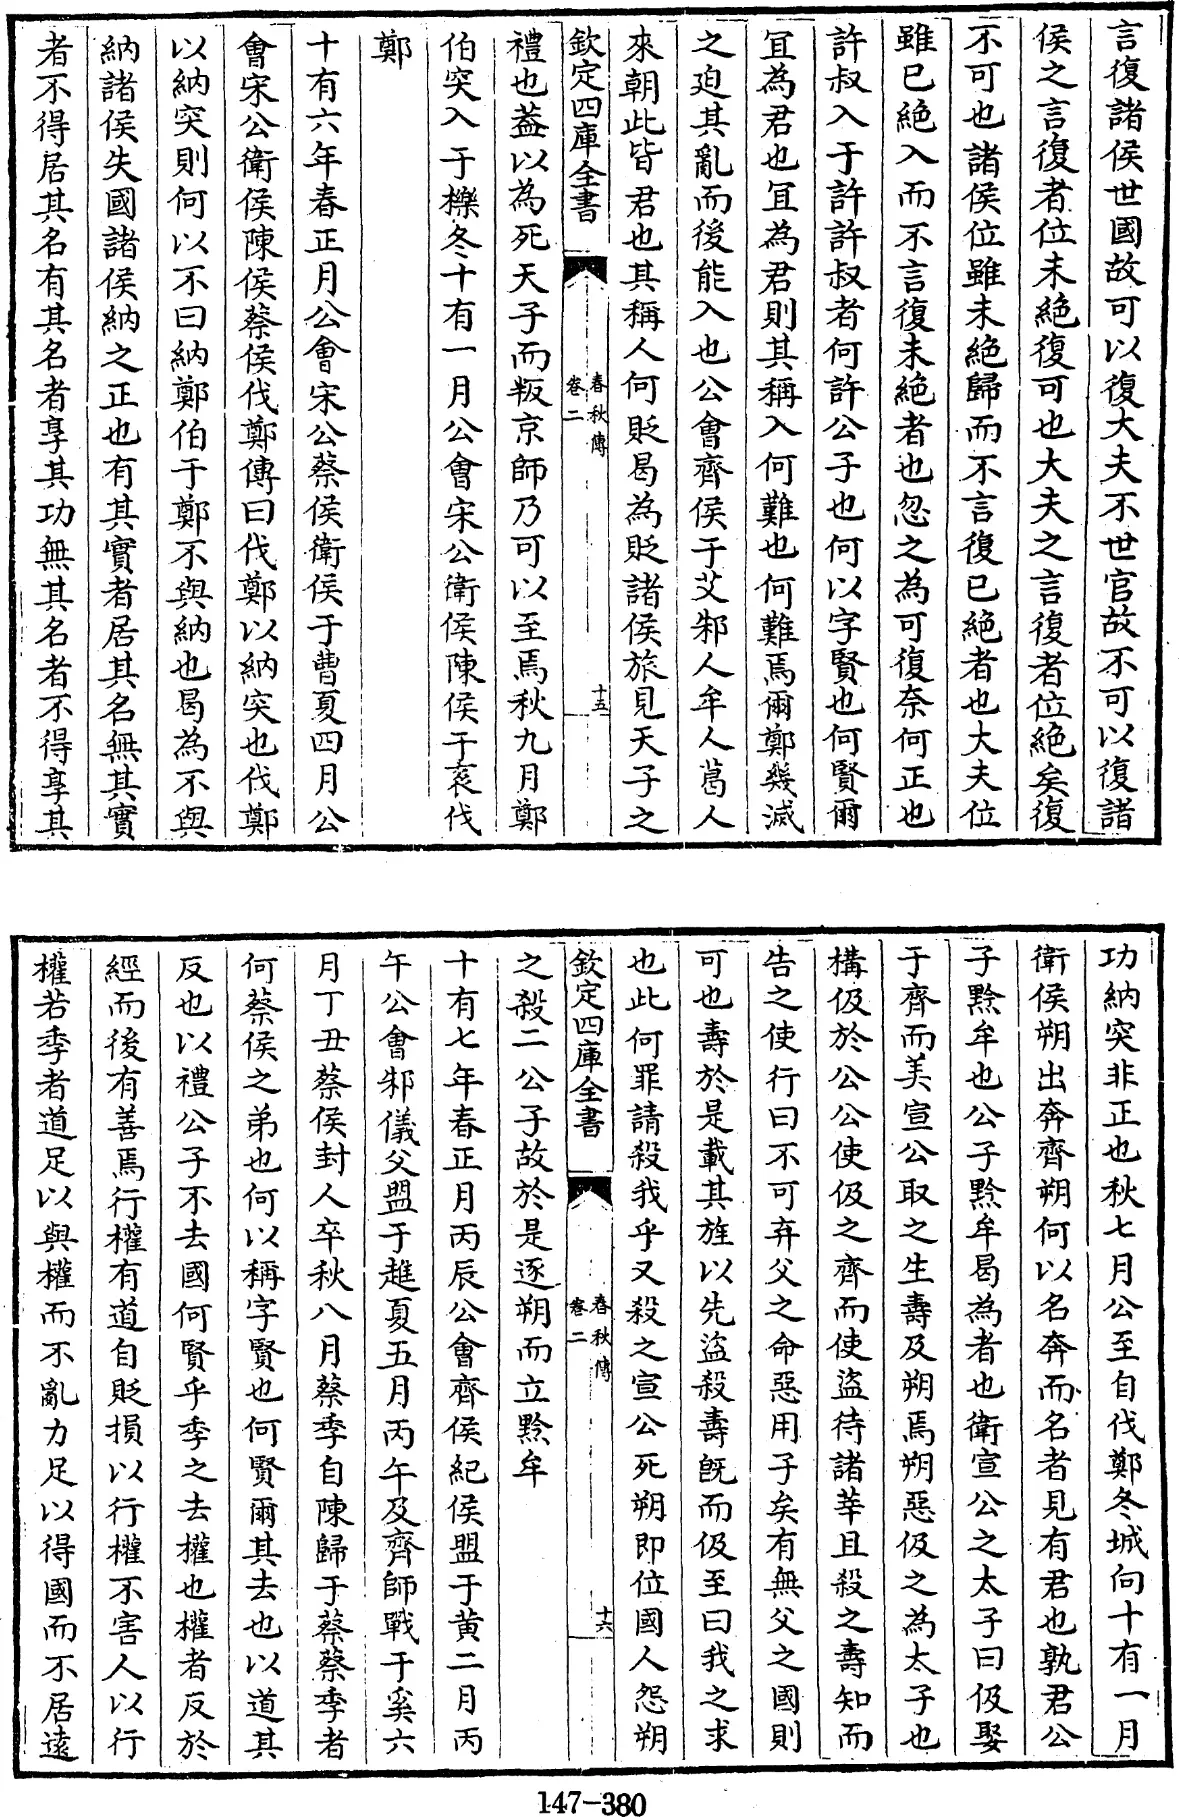 言復諸侯世國故可以復大夫不世官故不可以復諸
侯之言復者位未絶復可也大夫之言復者位絶矣復
不可也諸侯位雖未絶歸而不言復已絶者也大夫位
雖已絶入而不言復未絶者也忽之為可復奈何正也
許叔入于許許叔者何許公子也何以字賢也何賢爾
宜為君也宜為君則其稱入何難也何難焉爾鄭㡬滅
之迫其亂而後能入也公會齊侯于艾邾人牟人葛人
來朝此皆君也其稱人何貶曷為貶諸侯旅見天子之
欽定四庫全書
春秋傳
卷二
十五
禮也葢以為死天子而叛京師乃可以至焉秋九月鄭
伯突入于櫟冬十有一月公會宋公衛侯陳侯于袲伐
鄭
十有六年春正月公會宋公蔡侯衛侯于曹夏四月公
會宋公衛侯陳侯蔡侯伐鄭傳曰伐鄭以納突也伐鄭
以納突則何以不曰納鄭伯于鄭不與納也曷為不與
納諸侯失國諸侯納之正也有其實者居其名無其實
者不得居其名有其名者享其功無其名者不得享其
功納突非正也秋七月公至自伐鄭冬城向十有一月
衛侯朔出奔齊朔何以名奔而名者見有君也孰君公
子黔牟也公子黔牟曷為者也衛宣公之太子曰伋娶
于齊而美宣公取之生壽及朔焉朔惡伋之為太子也
構伋於公公使伋之齊而使盜待諸莘且殺之壽知而
告之使行曰不可弃父之命惡用子矣有無父之國則
可也壽於是載其旌以先盜殺壽既而伋至曰我之求
也此何罪請殺我乎又殺之宣公死朔即位國人怨朔
欽定四庫全書
春秋傳
卷二
十六
之殺二公子故於是逐朔而立黔牟
十有七年春正月丙辰公會齊侯紀侯盟于黄二月丙
午公會邾儀父盟于趡夏五月丙午及齊師戰于奚六
月丁丑蔡侯封人卒秋八月蔡季自陳歸于蔡蔡季者
何蔡侯之弟也何以稱字賢也何賢爾其去也以道其
反也以禮公子不去國何賢乎季之去權也權者反於
經而後有善焉行權有道自貶損以行權不害人以行
權若季者道足以與權而不亂力足以得國而不居遠
147-380